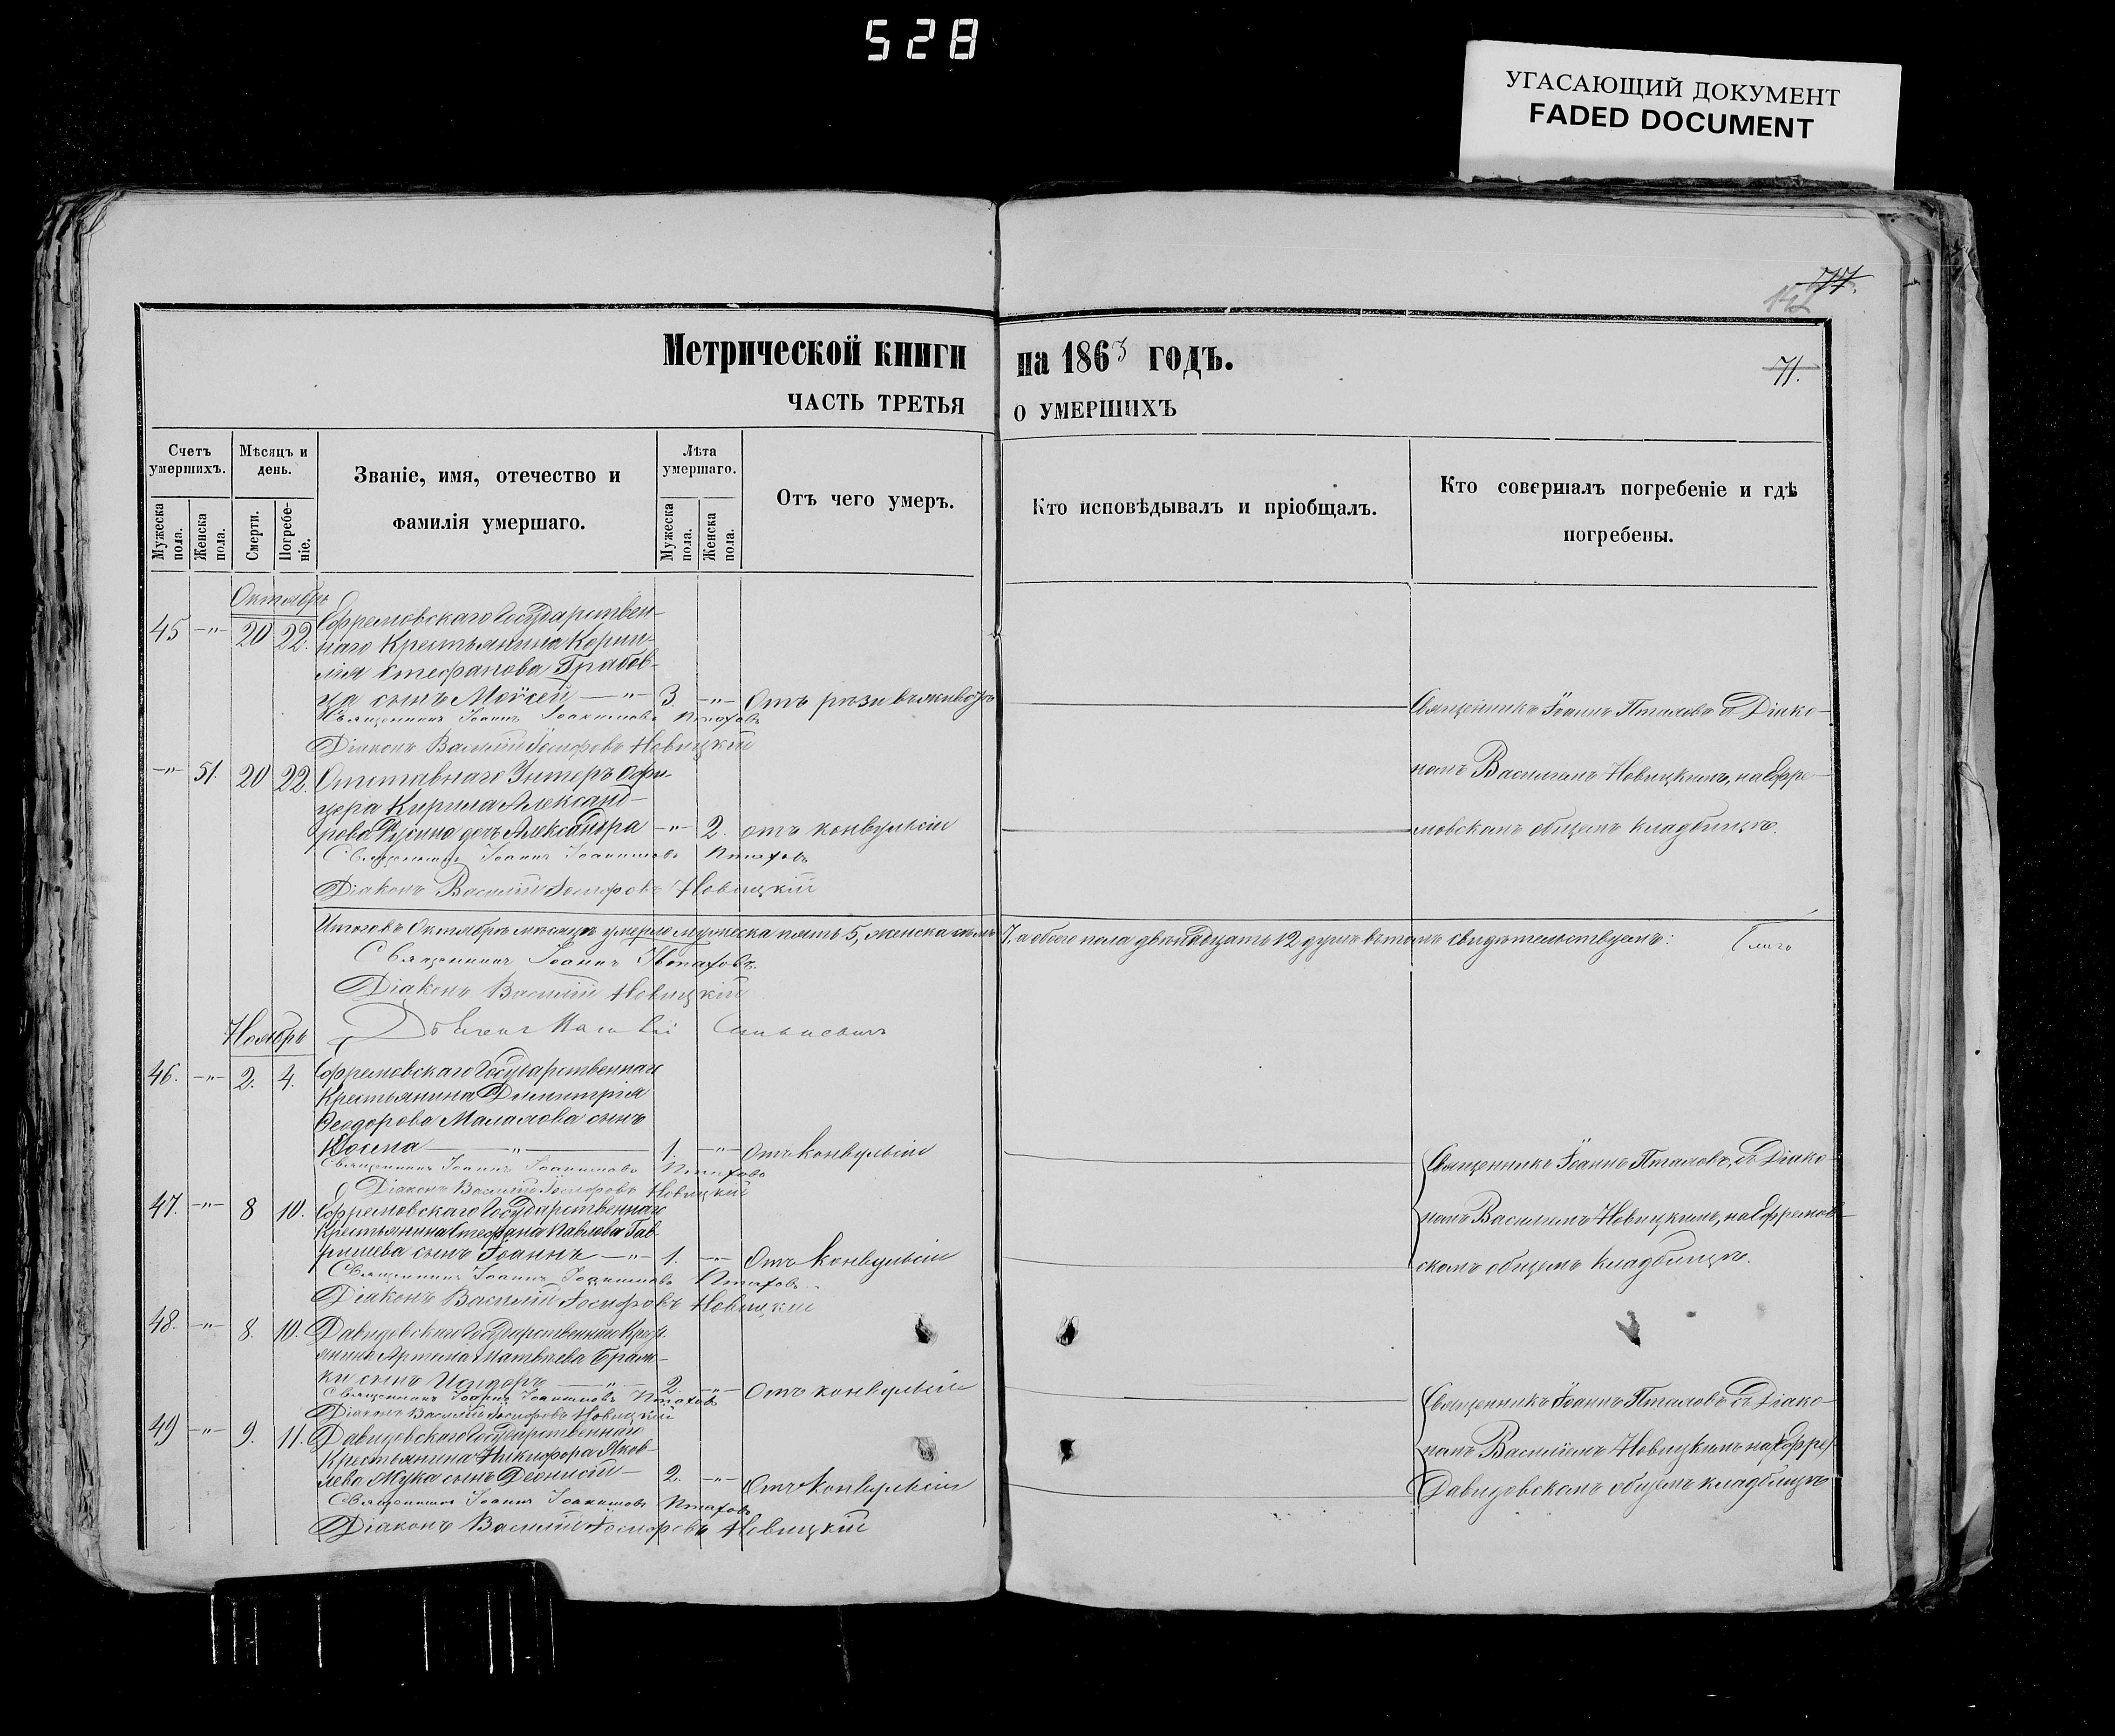 528
УГАСАЮЩИЙ ДОКУМЕНТ
FADED DOCUMENT
77.
142
71.
Метрической книги на 1863 годъ.
ЧАСТЬ ТРЕТЬЯ О УМЕРШИХЪ
Счетъ умершихъ.
Мѣсяцъ и день.
Званіе, имя, отечество и фамилія умершаго.
Лѣта умершаго.
Отъ чего умеръ.
Кто исповѣдывалъ и пріобщалъ.
Кто совершалъ погребеніе и гдѣ погребены.
Мужеска пола.
Женска пола.
Смерти.
Погребеніе.
Мужеска пола.
Женска пола.
Октябрь
45 -"- 20 22. Ефремовскаго Государствен-
наго Крестьянина Корни-
лія Стефанова Грабов-
ца сынъ Моѵсей -"- 3. -"- Отъ рѣзи въ животѣ
Священникъ Іоаннъ Іоакимовъ Птаховъ
Діаконъ Василій Іосифовъ Новицкій
-"- 51. 20 22. Отставнаго Унтеръ Офи-
цера Кирила Александ-
рова Русина дочь Александра -"- 2. отъ конвульсіи
Священникъ Іоаннъ Іоакимовъ Птаховъ
Діаконъ Василій Іосифовъ Новицкій
Священникъ Іоаннъ Птаховъ съ Діако-
номъ Василіемъ Новицкимъ, на Ефре-
мовскомъ общемъ кладбищѣ.
Итого въ Октябрѣ мѣсяцѣ умерло мужеска пять 5, женска семь 7, а обоего пола двѣнадцать 12 душъ въ томъ свидѣтельствуемъ:
Священникъ Іоаннъ Птаховъ.
Діаконъ Василій Новицкій
Ноябрь
46. -"- 2. 4. Ефремовскаго Государственнаго
Крестьянина Димитрія
Ѳеодорова Маламова сынъ
Косма -"- 1. -"- Отъ конвульсіи
Священникъ Іоаннъ Іоакимовъ Птаховъ
Діаконъ Василій Іосифовъ Новицкій
47. -"- 8 10. Ефремовскаго Государственнаго
Крестьянина Стефана Павлова Гав-
ришева сынъ Іоаннъ -"- 1. -"- Отъ конвульсіи
Священникъ Іоаннъ Іоакимовъ Птаховъ
Діаконъ Василій Іосифовъ Новицкій
Священникъ Іоаннъ Птаховъ, съ Діако-
номъ Василіемъ Новицкимъ, на Ефремов-
скомъ общемъ кладбищѣ.
48. -"- 8. 10. Давидовскаго Государственнаго Крест-
янина Артема Матвѣева
сынъ Исидоръ -"- 2. -"- Отъ конвульсіи
Священникъ Іоаннъ Іоакимовъ Птаховъ
Діаконъ Василій Іосифовъ Новицкій
49 -"- 9. 11. Давидовскаго Государственнаго
Крестьянина Никифора Яков-
лева Мука сынъ Діонисій 2. -"- Отъ конвульсіи
Священникъ Іоаннъ Іоакимовъ Птаховъ
Діаконъ Василій Іосифовъ Новицкій
Священникъ Іоаннъ Птаховъ съ Діако-
номъ Василіемъ Новицкимъ на Ефре/
Давидовскомъ общемъ кладбищѣ